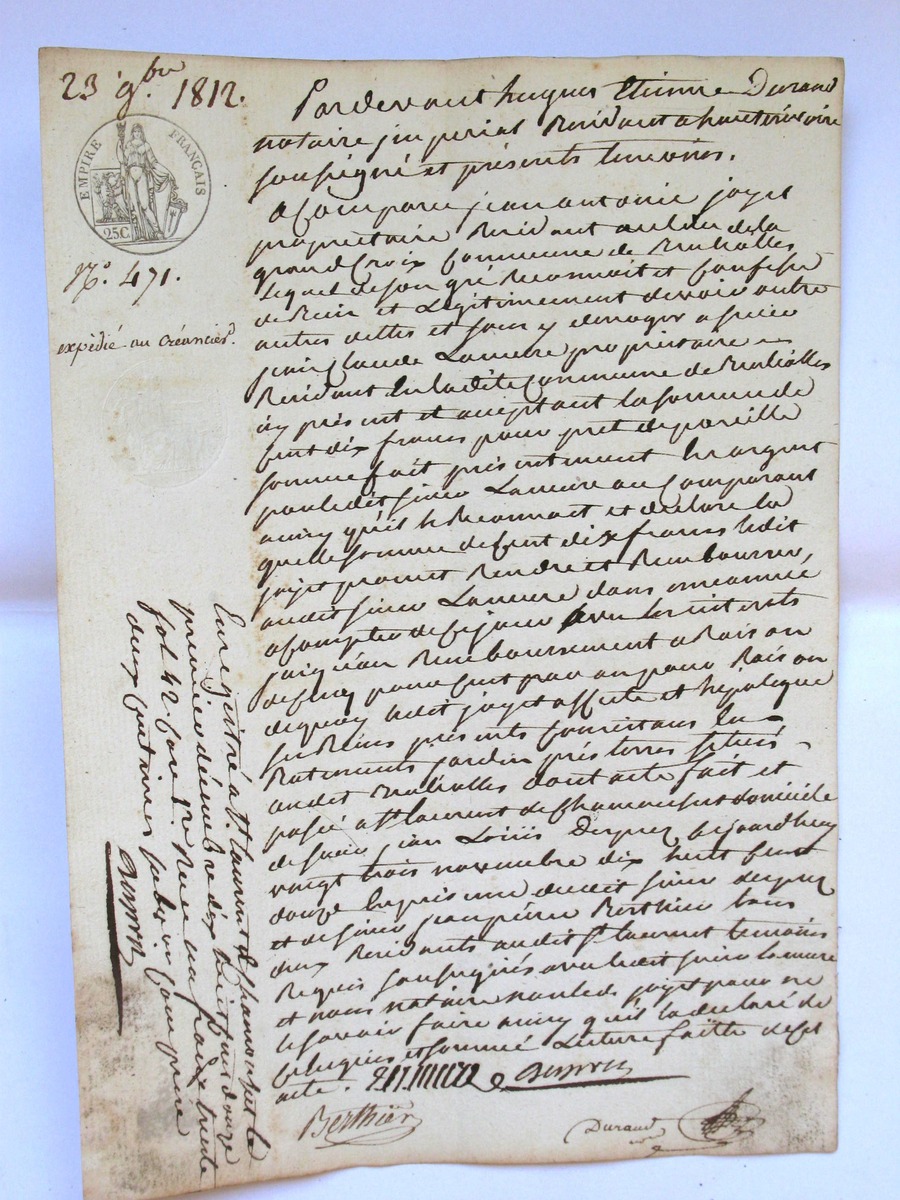 23 9.bre 1812.
EMPIRE FRANÇAIS
25C.
No. 471.
expédié au Créancier.
Pardevant hugues Etienne Durand
notaire jmperial Residant a hauterivoire
soussigné et présents temoins.
a Comparu jean antoine joyet
propriétaire Residant au lieu de la
grand Croix Commune de Brulioles
lequel de son gré Reconnoit et Confesse
de Bien et Légitimement devoir outre
autres dettes et sans y deroger a sieur
jean Claude Lamure propriétaire
Residant en ladite Commune de Brulioles
icy présent et acceptant la somme de
Cent dix francs pour pret de pareille
somme fait présentement En argent
par ledit sieur Lamure au Comparant
ainsy qu'il le Reconnoit et declare la
quelle somme de Cent dix francs ledit
joyet promet Rendre et Rembourser
audit sieur Lamure dans une année
a Compter de Ce jour avec les interets
jusqu'au Remboursement a Raison
de Cinq pour Cent par an pour Raison
de quoy ledit joyet affecte et hipoteque
ses Biens présents Consistans En
Batiments jardin prés terres situés
audit Brulioles dont acte fait et
passé a St laurent de Chamousset domicile
de sieur jean Louis Desprez aujourdhuy
vingt trois novembre dix huit Cent
douze En présence dudit sieur desprez
et de sieur jean pierre Berthier tous
deux Residants audit St laurent temoins
Requis soussignés avec ledit sieur lamure
et nous notaire non led. joyet pour ne
le savoir faire ainsy qu'il l'a declaré de
Ce Enquis et sommé Lecture faitte desd
acte.
Berthier
Durand
Enregistré a St. laurent de Chamousset le
premier décembre dix huit Cent douze
fol 42. Reçu un franc trente
deux Centimes subvention Comprise